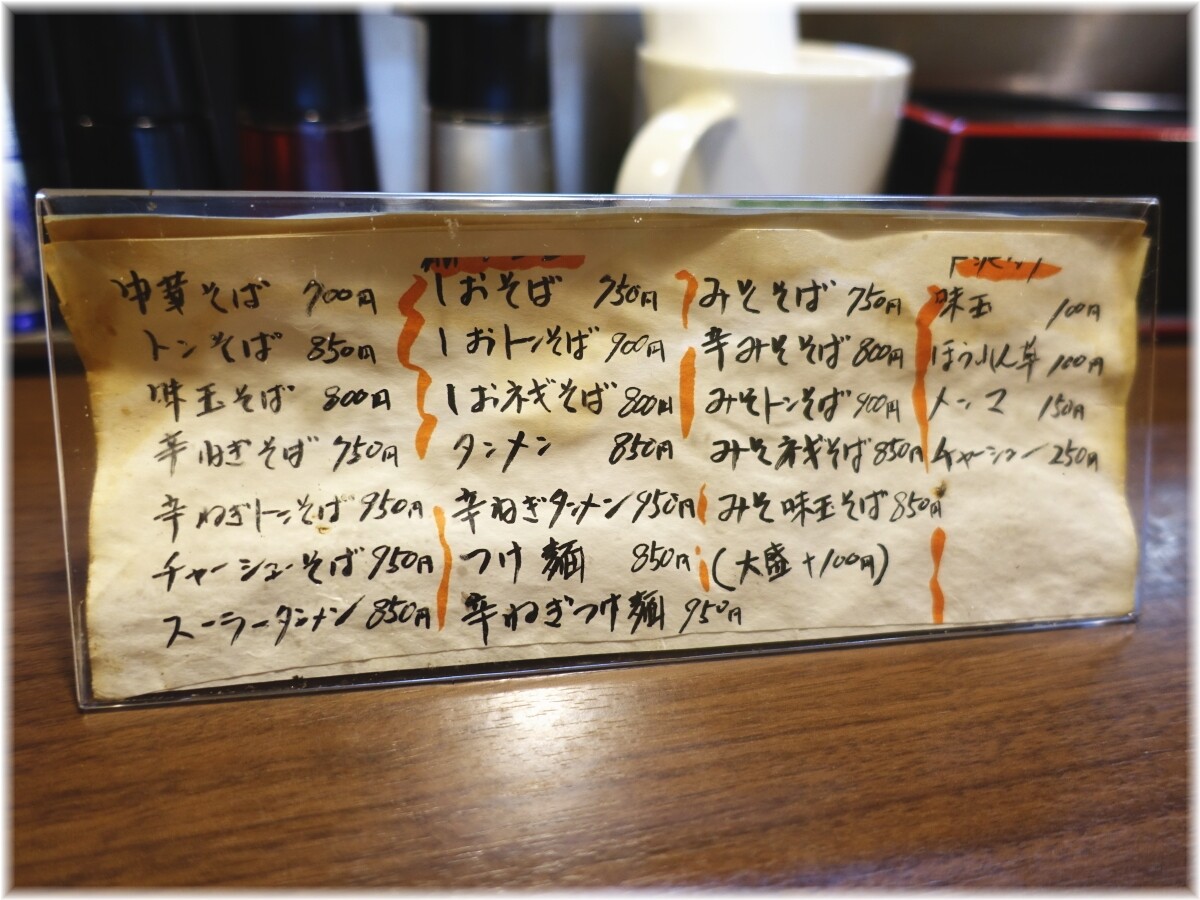 中華そば 700円
トンそば 850円
味玉そば 800円
辛ねぎそば 750円
辛ねぎトンそば 950円
チャーシューそば 950円
スーラータンメン 850円
しおそば 750円
しおトンそば 900円
しおネギそば 800円
タンメン 850円
辛ねぎタンメン 950円
つけ麺 850円
辛ねぎつけ麺 950円
みそそば 750円
辛みそそば 800円
みそトンそば 900円
みそネギそば 850円
みそ味玉そば 850円
(大盛+100円)
味玉 100円
ほうれん草 100円
メンマ 150円
チャーシュー 250円